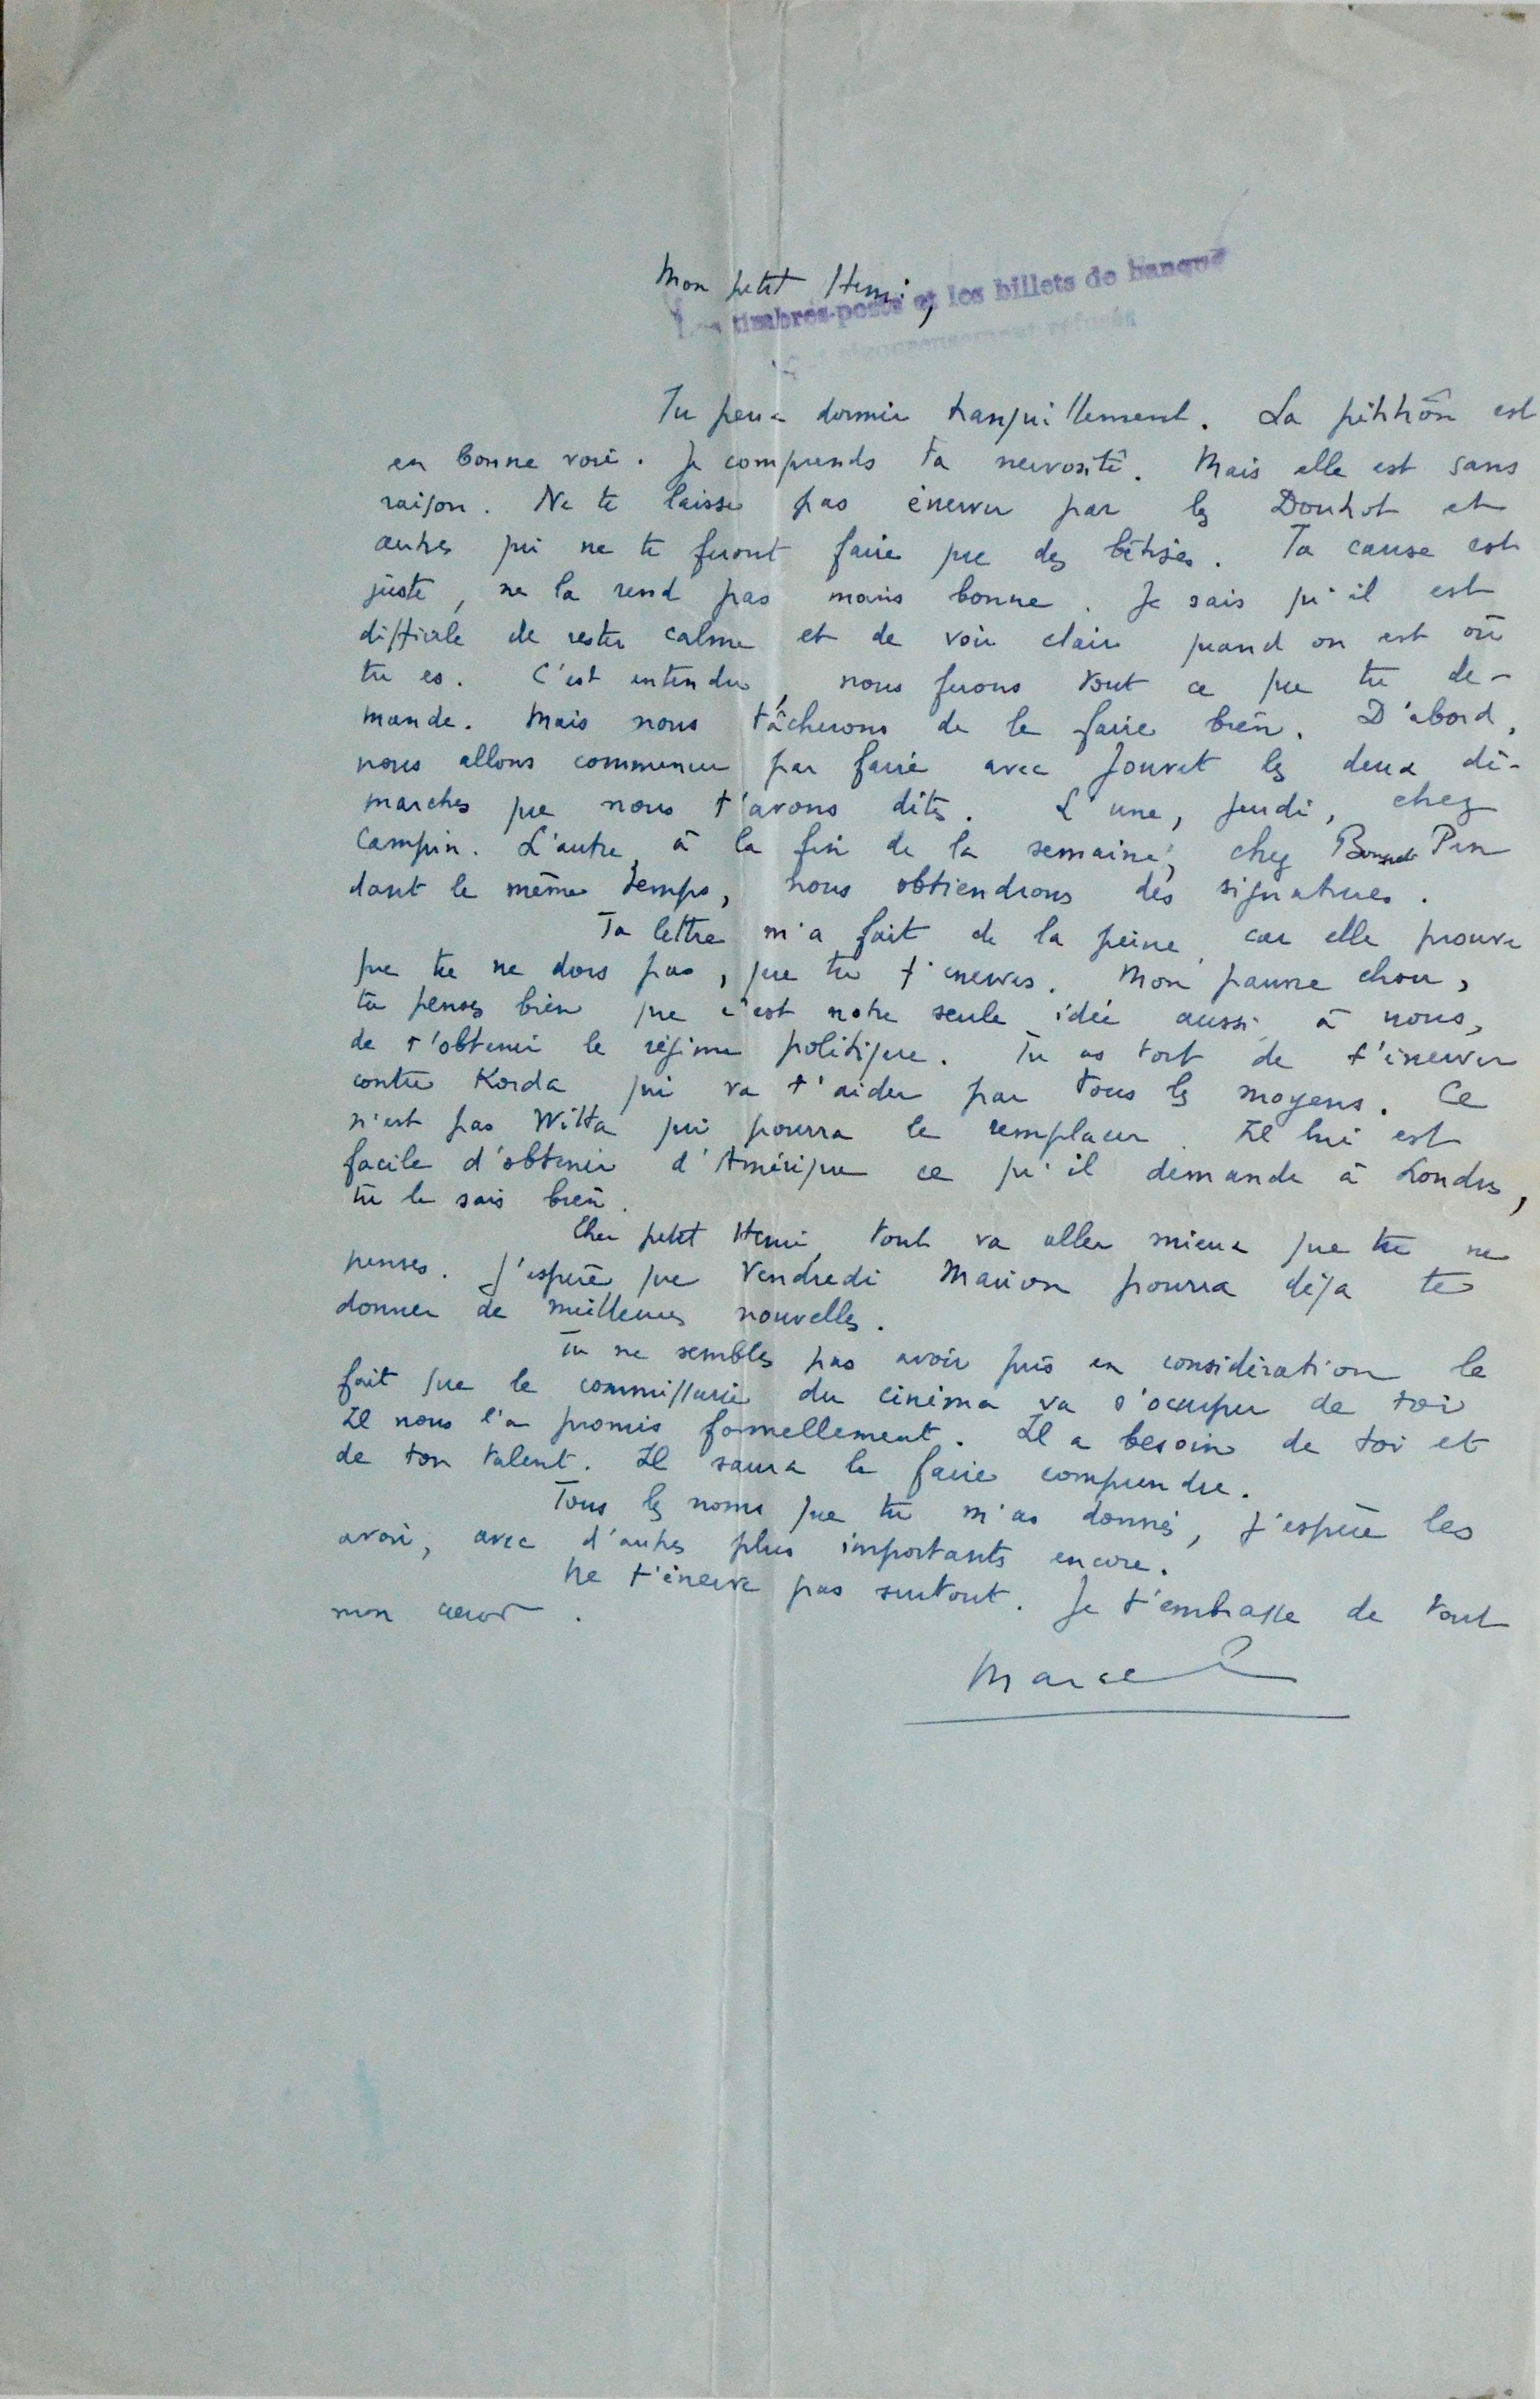 Mon petit Henri,
Les timbres-poste et les billets de banque
sont rigoureusement refusés
Tu peux dormir tranquillement. La pétition est
en bonne voie. Je comprends ta nervosité. Mais elle est sans
raison. Ne te laisse pas énerver par les et
autres qui ne te feront faire que des bêtises. Ta cause est
juste, ne la rend pas moins bonne. Je sais qu'il est
difficile de rester calme et de voir clair quand on est où
tu es. C'est entendu, nous ferons tout ce que tu de-
mande. Mais nous tâcherons de le faire bien. D'abord,
nous allons commencer par faire avec Jouvet les deux dé-
marches que nous t'avons dites. L'une, jeudi, chez
Campin. L'autre, à la fin de la semaine, chez Bonnet Pen
dant le même temps, nous obtiendrons des signatures.
Ta lettre m'a fait de la peine, car elle prouve
que tu ne dors pas, que tu t'énerves. Mon pauvre chou,
tu penses bien que c'est notre seule idée aussi, à nous,
de t'obtenir le régime politique. Tu as tort de t'énerver
contre Korda qui va t'aider par tous les moyens. Ce
n'est pas Witta qui pourra le remplacer. Il lui est
facile d'obtenir d'Amérique ce qu'il demande à Londres,
tu le sais bien.
Cher petit Henri, tout va aller mieux que tu ne
penses. J'espère que Vendredi Marion pourra déja te
donner de meilleures nouvelles.
Tu ne sembles pas avoir pris en considération le
fait que le commissaire du cinéma va s'occuper de toi
Il nous l'a promis formellement. Il a besoin de toi et
de ton talent. Il saura le faire comprendre.
Tous les noms que tu m'as donnés, j'espère les
avoir, avec d'autres plus importants encore.
Ne t'énerve pas surtout. Je t'embrasse de tout
mon cœur.
Marcel